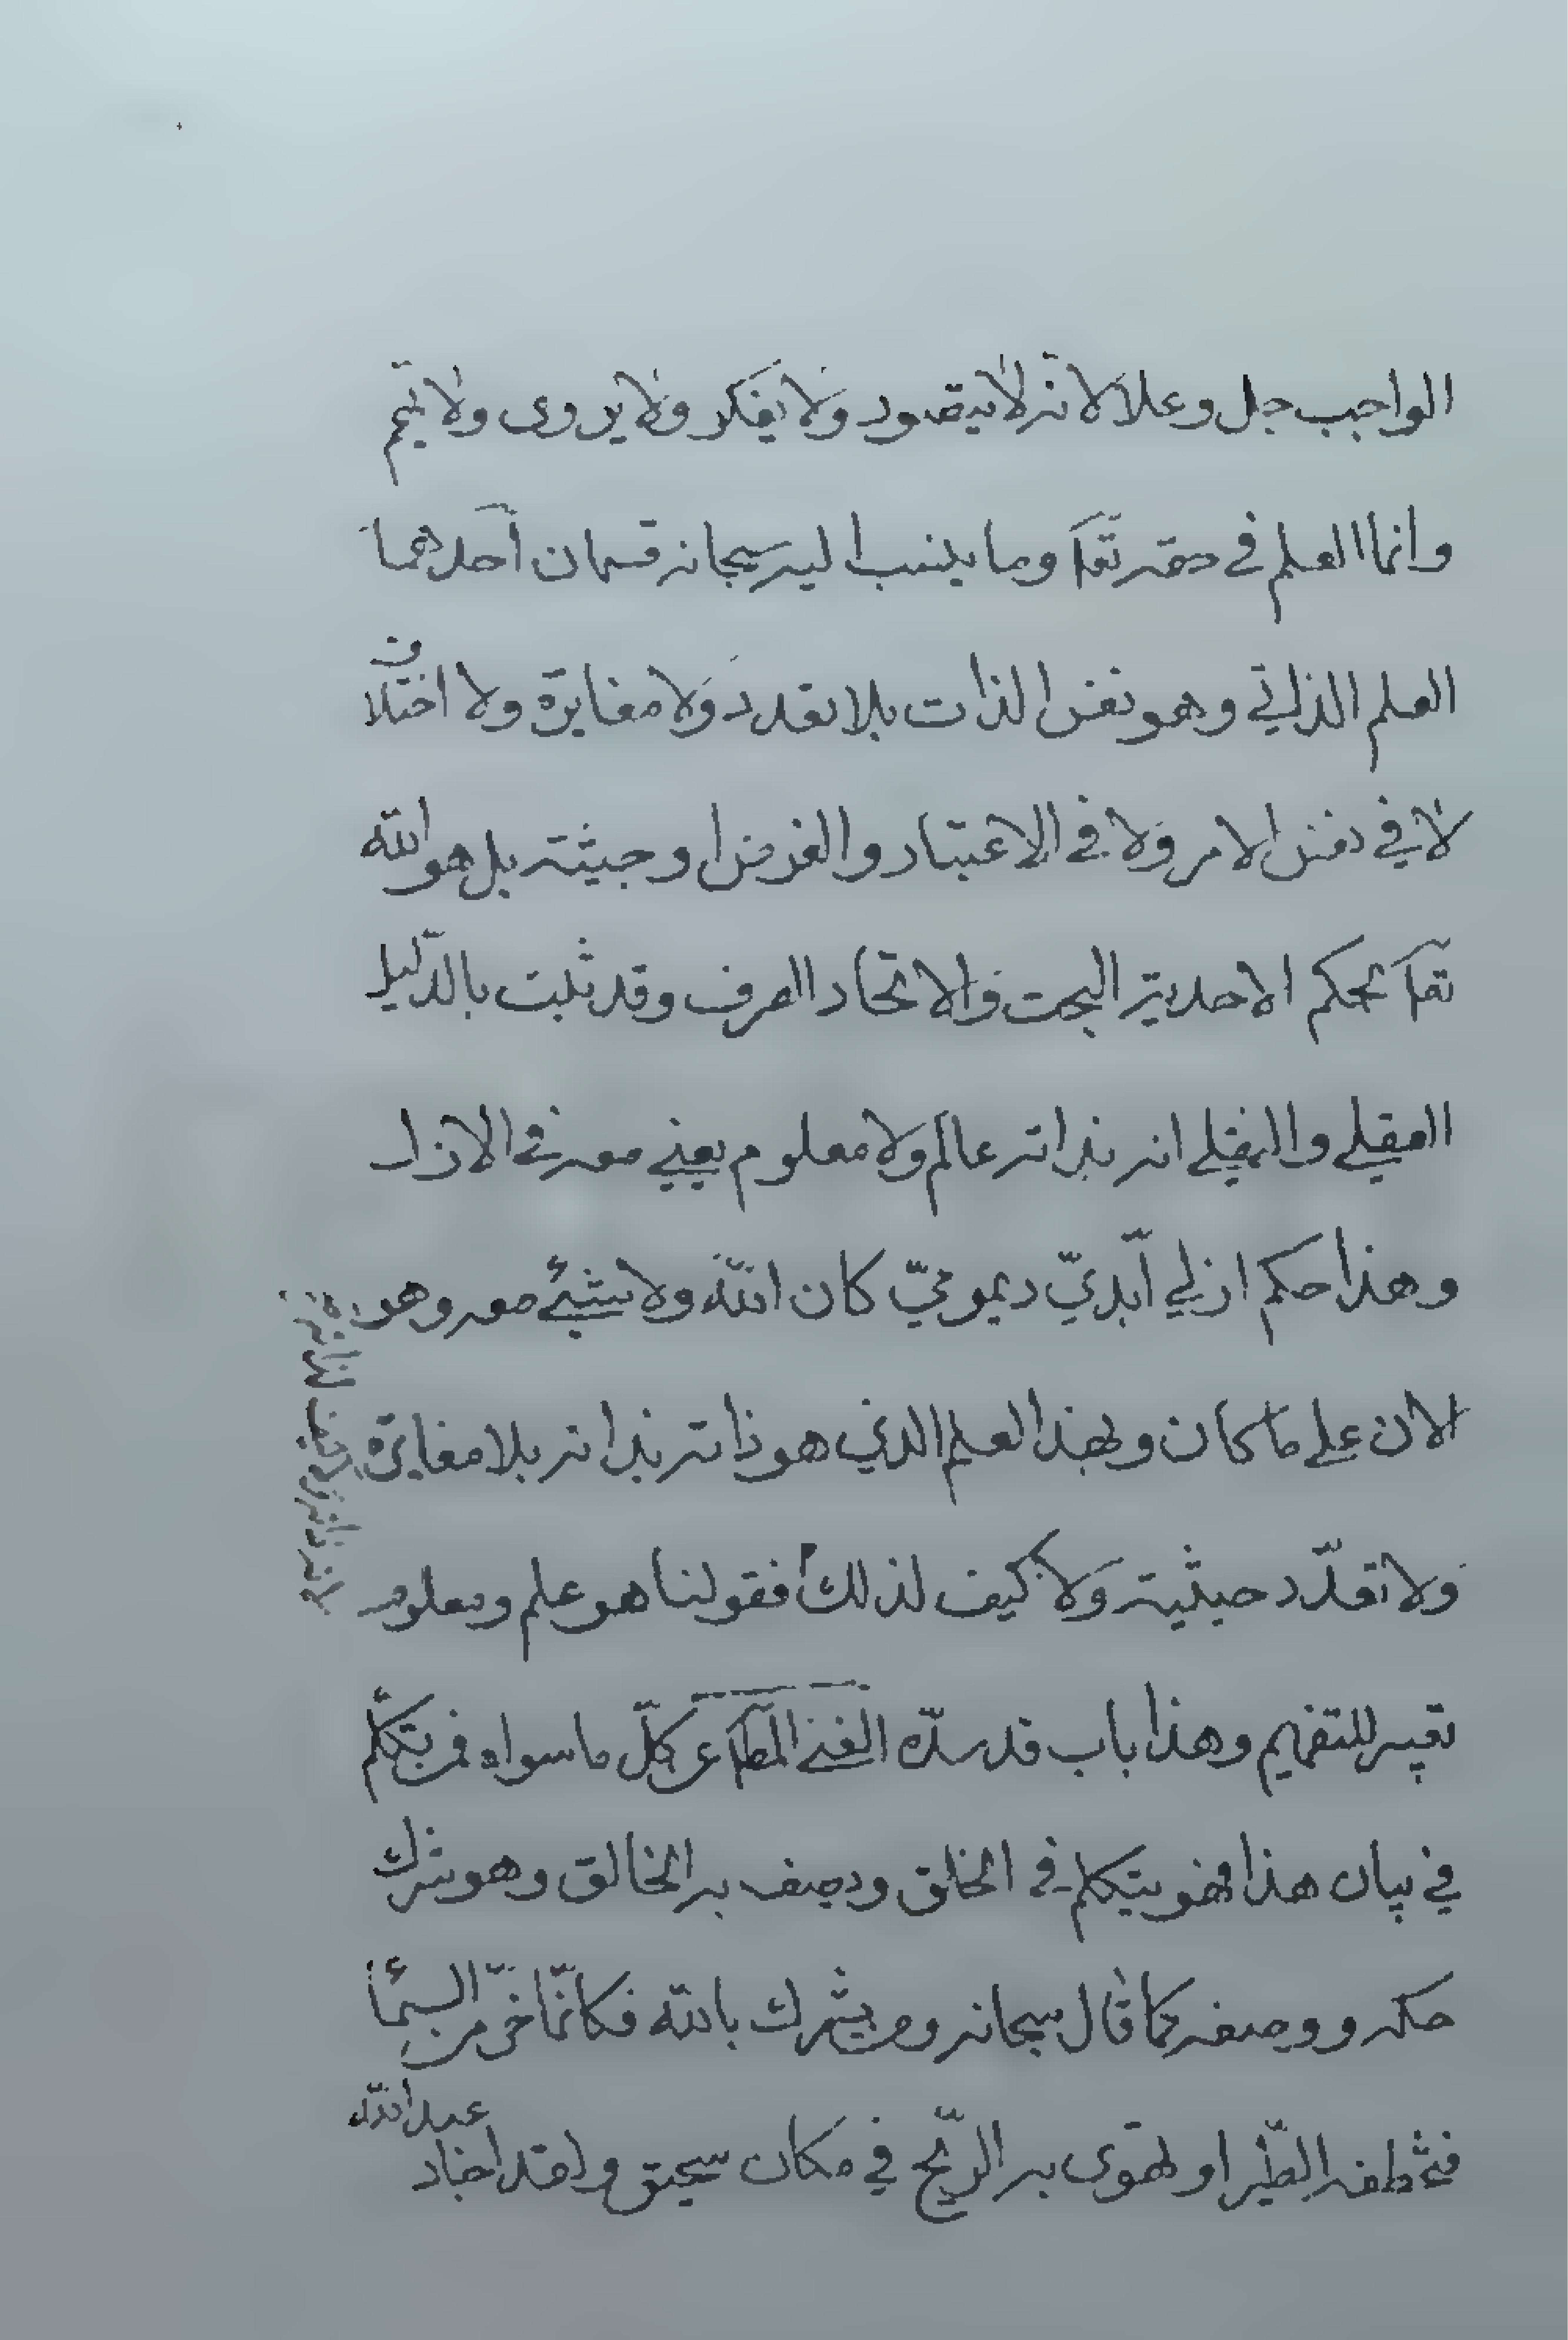 الواجب جل وعلا لانه لا يتصور ولا يفكر ولا يروى ولا يهم
وانما العلم في حقه تعا وما ينسب اليه سبحانه قسمان احدهما
العلم الذاتي وهو نفس الذات بلا تعدد ولا مغايرة ولا اختلاف
لا في نفس الامر ولا في الاعتبار والفرض او حيثيته بل هو الله
تعا بحكم الاحدية البحت والاتحاد الصرف وقد ثبت بالدّليل
العقلي والنقلي انه بذاته عالم ولا معلوم يعني معه في الازل
وهذا حكم ازلي أبديّ ديموميّ كان الله ولا شيء معه وهو
الان على ما كان وبهذا العلم الذي هو ذاته بذاته بلا مغايرة
ولا تعدّد حيثية ولا كيف لذلك فقولنا هو علم ومعلوم
تعبير للتفهيم وهذا باب قد سدّه الغني المطلق عن كلّ ما سواه فمن يتكلم
في بيان هذا فهو يتكلم في الخلق ويصف به الخالق وهو شرك
حكمه ووصفه كما قال سبحانه ومن يشرك بالله فكانّما خرّ من السمآء
فتخطفه الطّير او تهوى به الرّيح في مكان سحيق ولقد اجاد
عبد الله